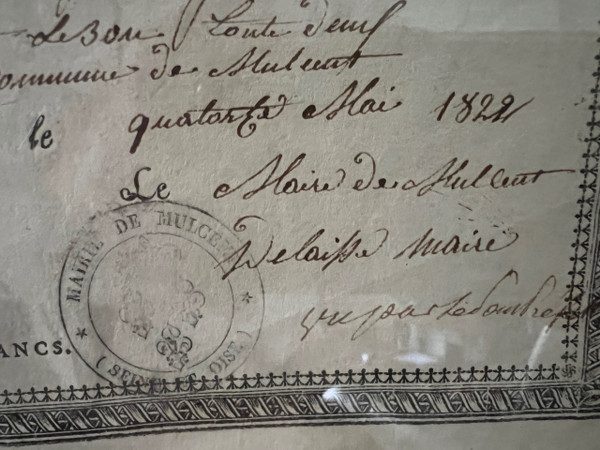 Le Bon
Commune de Mulcent
le quatorze Mai 1822
Le Maire de Mulcent
Delaisse maire
vu par
MAIRIE DE MULCENT
ANCS.
(SEINE ET OISE)